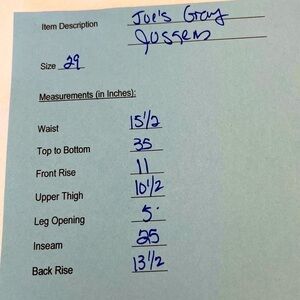 Item Description Joe's Gray
Joggers
Size 29
Measurements (in Inches):
Waist 15 1/2
Top to Bottom 35
Front Rise 11
Upper Thigh 10 1/2
Leg Opening 5
Inseam 25
Back Rise 13 1/2